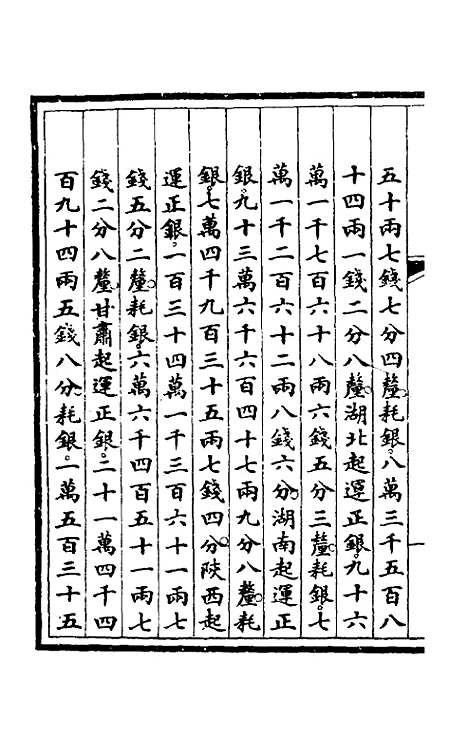 五十兩七錢七分四釐耗銀八萬三千五百八
十四兩一錢二分八釐湖北起運正銀九十六
萬一千七百六十八兩六錢五分三釐耗銀七
萬一千二百六十二兩八錢六分湖南起運正
銀九十三萬六千六百四十七兩九分八釐耗
銀七萬四千九百三十五兩七錢四分陝西起
運正銀一百三十四萬一千三百六十一兩七
錢五分二釐耗銀六萬六千四百五十一兩七
錢二分八釐甘肅起運正銀二十一萬四千四
百九十四兩五錢八分耗銀一萬五百三十五